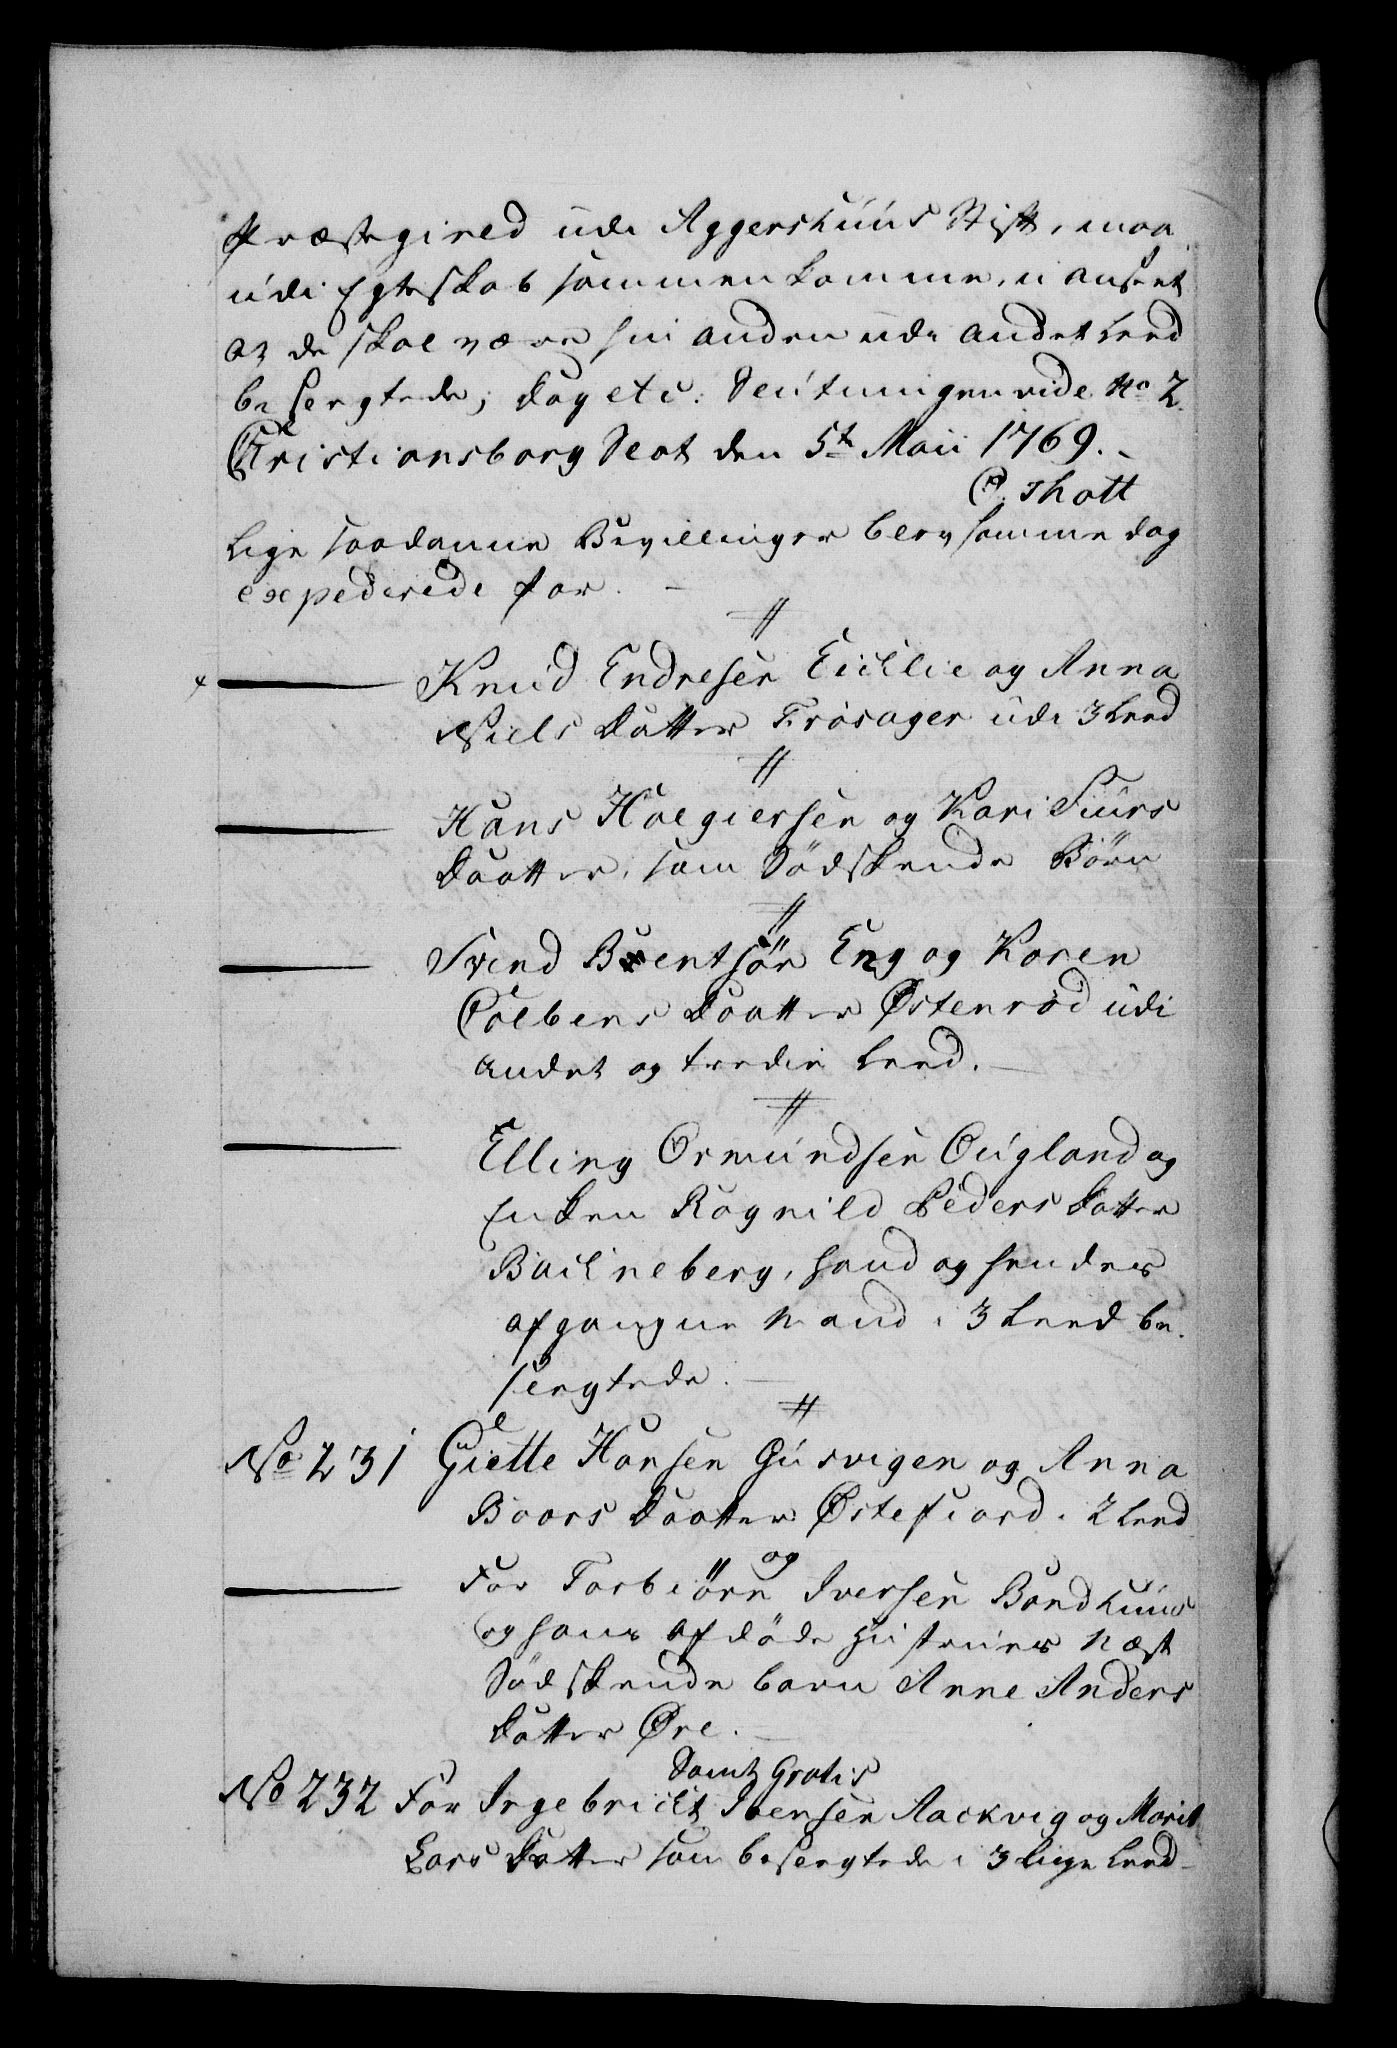 Præstegield udi Aggershuus Stift, maa
udi Egteskab sammenkomme, u anseet
at de skal være hin anden udi andet Leed
beslegtede; dog etc. Slutningen vide No 2.
Christiansborg Slot den 5te Maii 1769.
O. Thott
Lige saadanne Bevillinger blev samme dag
expederede for.
//
Knud Endresen Eichlie og Anna
Niels Datter Trøsager udi 3 Leed
//
Hans Holgiersen og Kari Siurs
Daatter, som Sødskende Børn
//
Svend Bentsøn Eng og Karen
Colbens Daatter Østenrød udi
andet og tredie Leed.
//
Elling Ormundsen Ougland og
Enken Ragnild Peders Datter
Bachneberg, hand og hendes
afgangne Mand i 3 Leed be-
slegtede.
//
No 231 Giette Hansen Gusvigen og Anna
Boors Daatter Østefiord i 2 Leed
og
For Torbiørn Iversen Bondhuus
og hans afdøde Hustrues Næst
Sødskende barn Anne Anders
Datter Øre.
Samt Gratis
No 232 For Ingebricht Iversen Aackvig og Marit
Lars Datter som beslegtede i 3 liige Leed